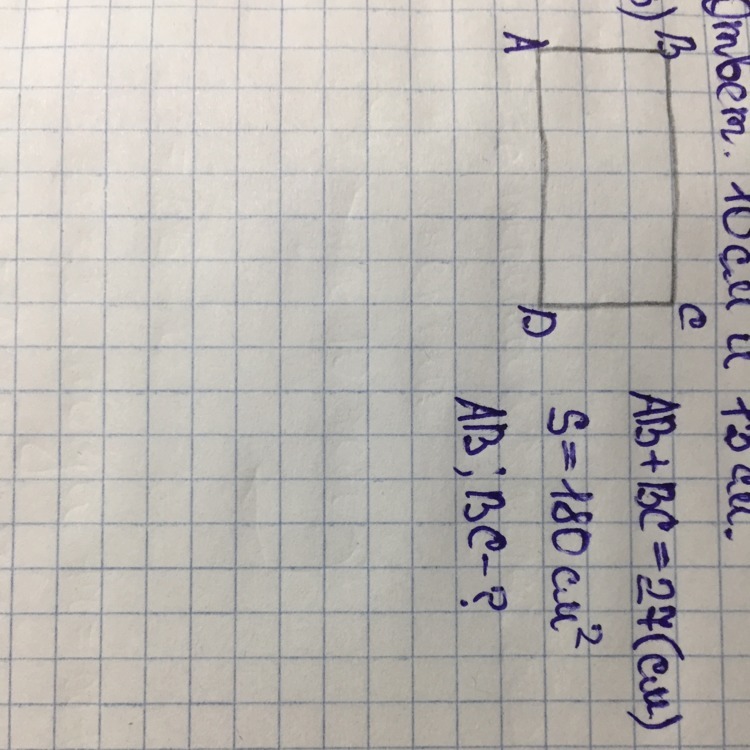 Ответ. 10 см и см.
б) B C
A D
AB + BC = 27 (см)
S = 180 см²
AB; BC - ?